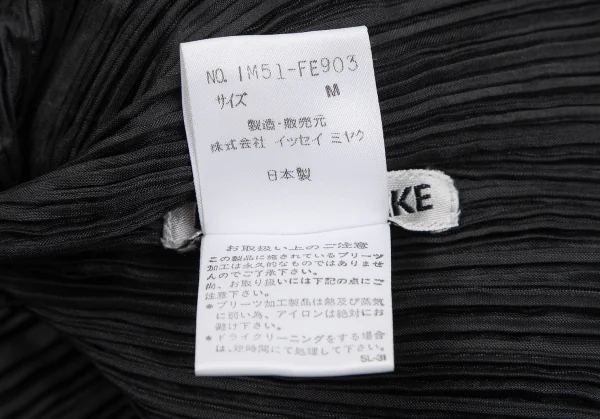 NO. IM51-FE903
サイズ M
製造・販売元
株式会社 イッセイ ミヤケ
日本製
KE
お取扱い上のご注意
この製品に施されているプリーツ
加工は永久的なものではありませ
んのでご了承下さい。
尚、お取り扱いには下記の点にご
注意下さい。
*プリーツ加工製品は熱及び蒸気
に弱い為、アイロンは絶対にお
避け下さい。
*ドライクリーニングをする場合
は、短時間にて処理して下さい。
SL-31